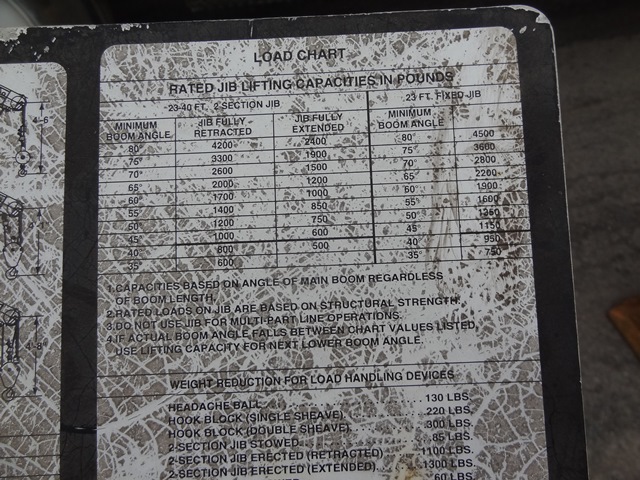 LOAD CHART
RATED JIB LIFTING CAPACITIES IN POUNDS
23-40 FT. 2 SECTION JIB 23 FT. FIXED JIB
MINIMUM BOOM ANGLE JIB FULLY RETRACTED JIB FULLY EXTENDED MINIMUM BOOM ANGLE
80° 4200 2400 80° 4500
75° 3300 1900 75° 3600
70° 2600 1500 70° 2800
65° 2000 1200 65° 2200
60° 1700 1000 60° 1900
55° 1400 850 55° 1600
50° 1200 750 50° 1250
45° 1000 600 45° 1150
40° 800 500 40° 950
35° 600 35° 750
1.CAPACITIES BASED ON ANGLE OF MAIN BOOM REGARDLESS
OF BOOM LENGTH.
2.RATED LOADS ON JIB ARE BASED ON STRUCTURAL STRENGTH.
3.DO NOT USE JIB FOR MULTI-PART LINE OPERATIONS.
4.IF ACTUAL BOOM ANGLE FALLS BETWEEN CHART VALUES LISTED,
USE LIFTING CAPACITY FOR NEXT LOWER BOOM ANGLE.
WEIGHT REDUCTION FOR LOAD HANDLING DEVICES
HEADACHE BALL 130 LBS.
HOOK BLOCK (SINGLE SHEAVE) 220 LBS.
HOOK BLOCK (DOUBLE SHEAVE) 300 LBS.
2-SECTION JIB STOWED 85 LBS.
2-SECTION JIB ERECTED (RETRACTED) 1100 LBS.
2-SECTION JIB ERECTED (EXTENDED) 1300 LBS.
60 LBS.
4-6
4-8